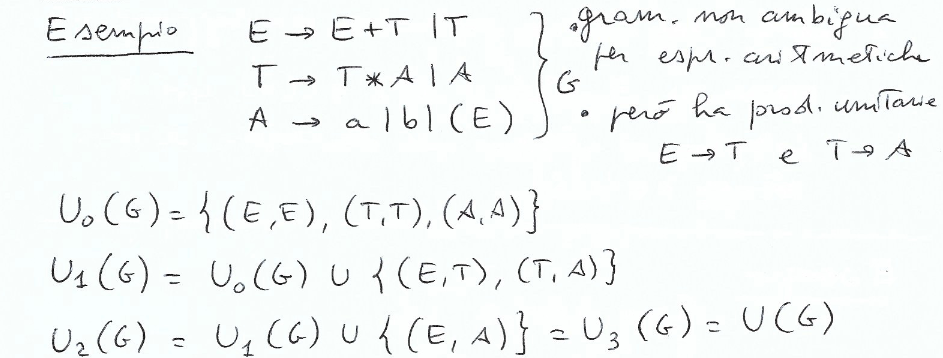 Esempio E → E+T | T } G • gram. non ambigua
T → T*A | A per espr. aritmetiche
A → a | b | (E) • però ha prod. unitarie
E → T e T → A
U₀(G) = {(E,E), (T,T), (A,A)}
U₁(G) = U₀(G) ∪ {(E,T), (T,A)}
U₂(G) = U₁(G) ∪ {(E,A)} = U₃(G) = U(G)